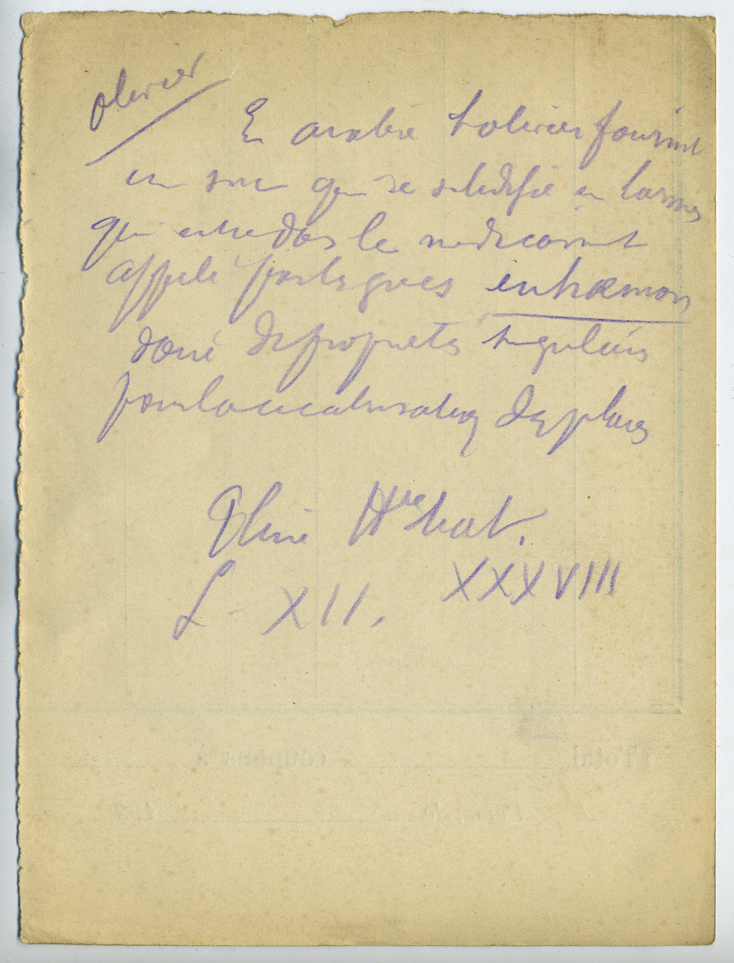 olivier
En arabie l'olivier fournit
un suc qui se solidifie en larmes
qui entre dans le medicament
appelé par les grecs enhæmon
doué de propriétés singulières
pour la cicatrisation des plaies
Pline Hre nat.
L. XII. XXXVIII
Total coupons à